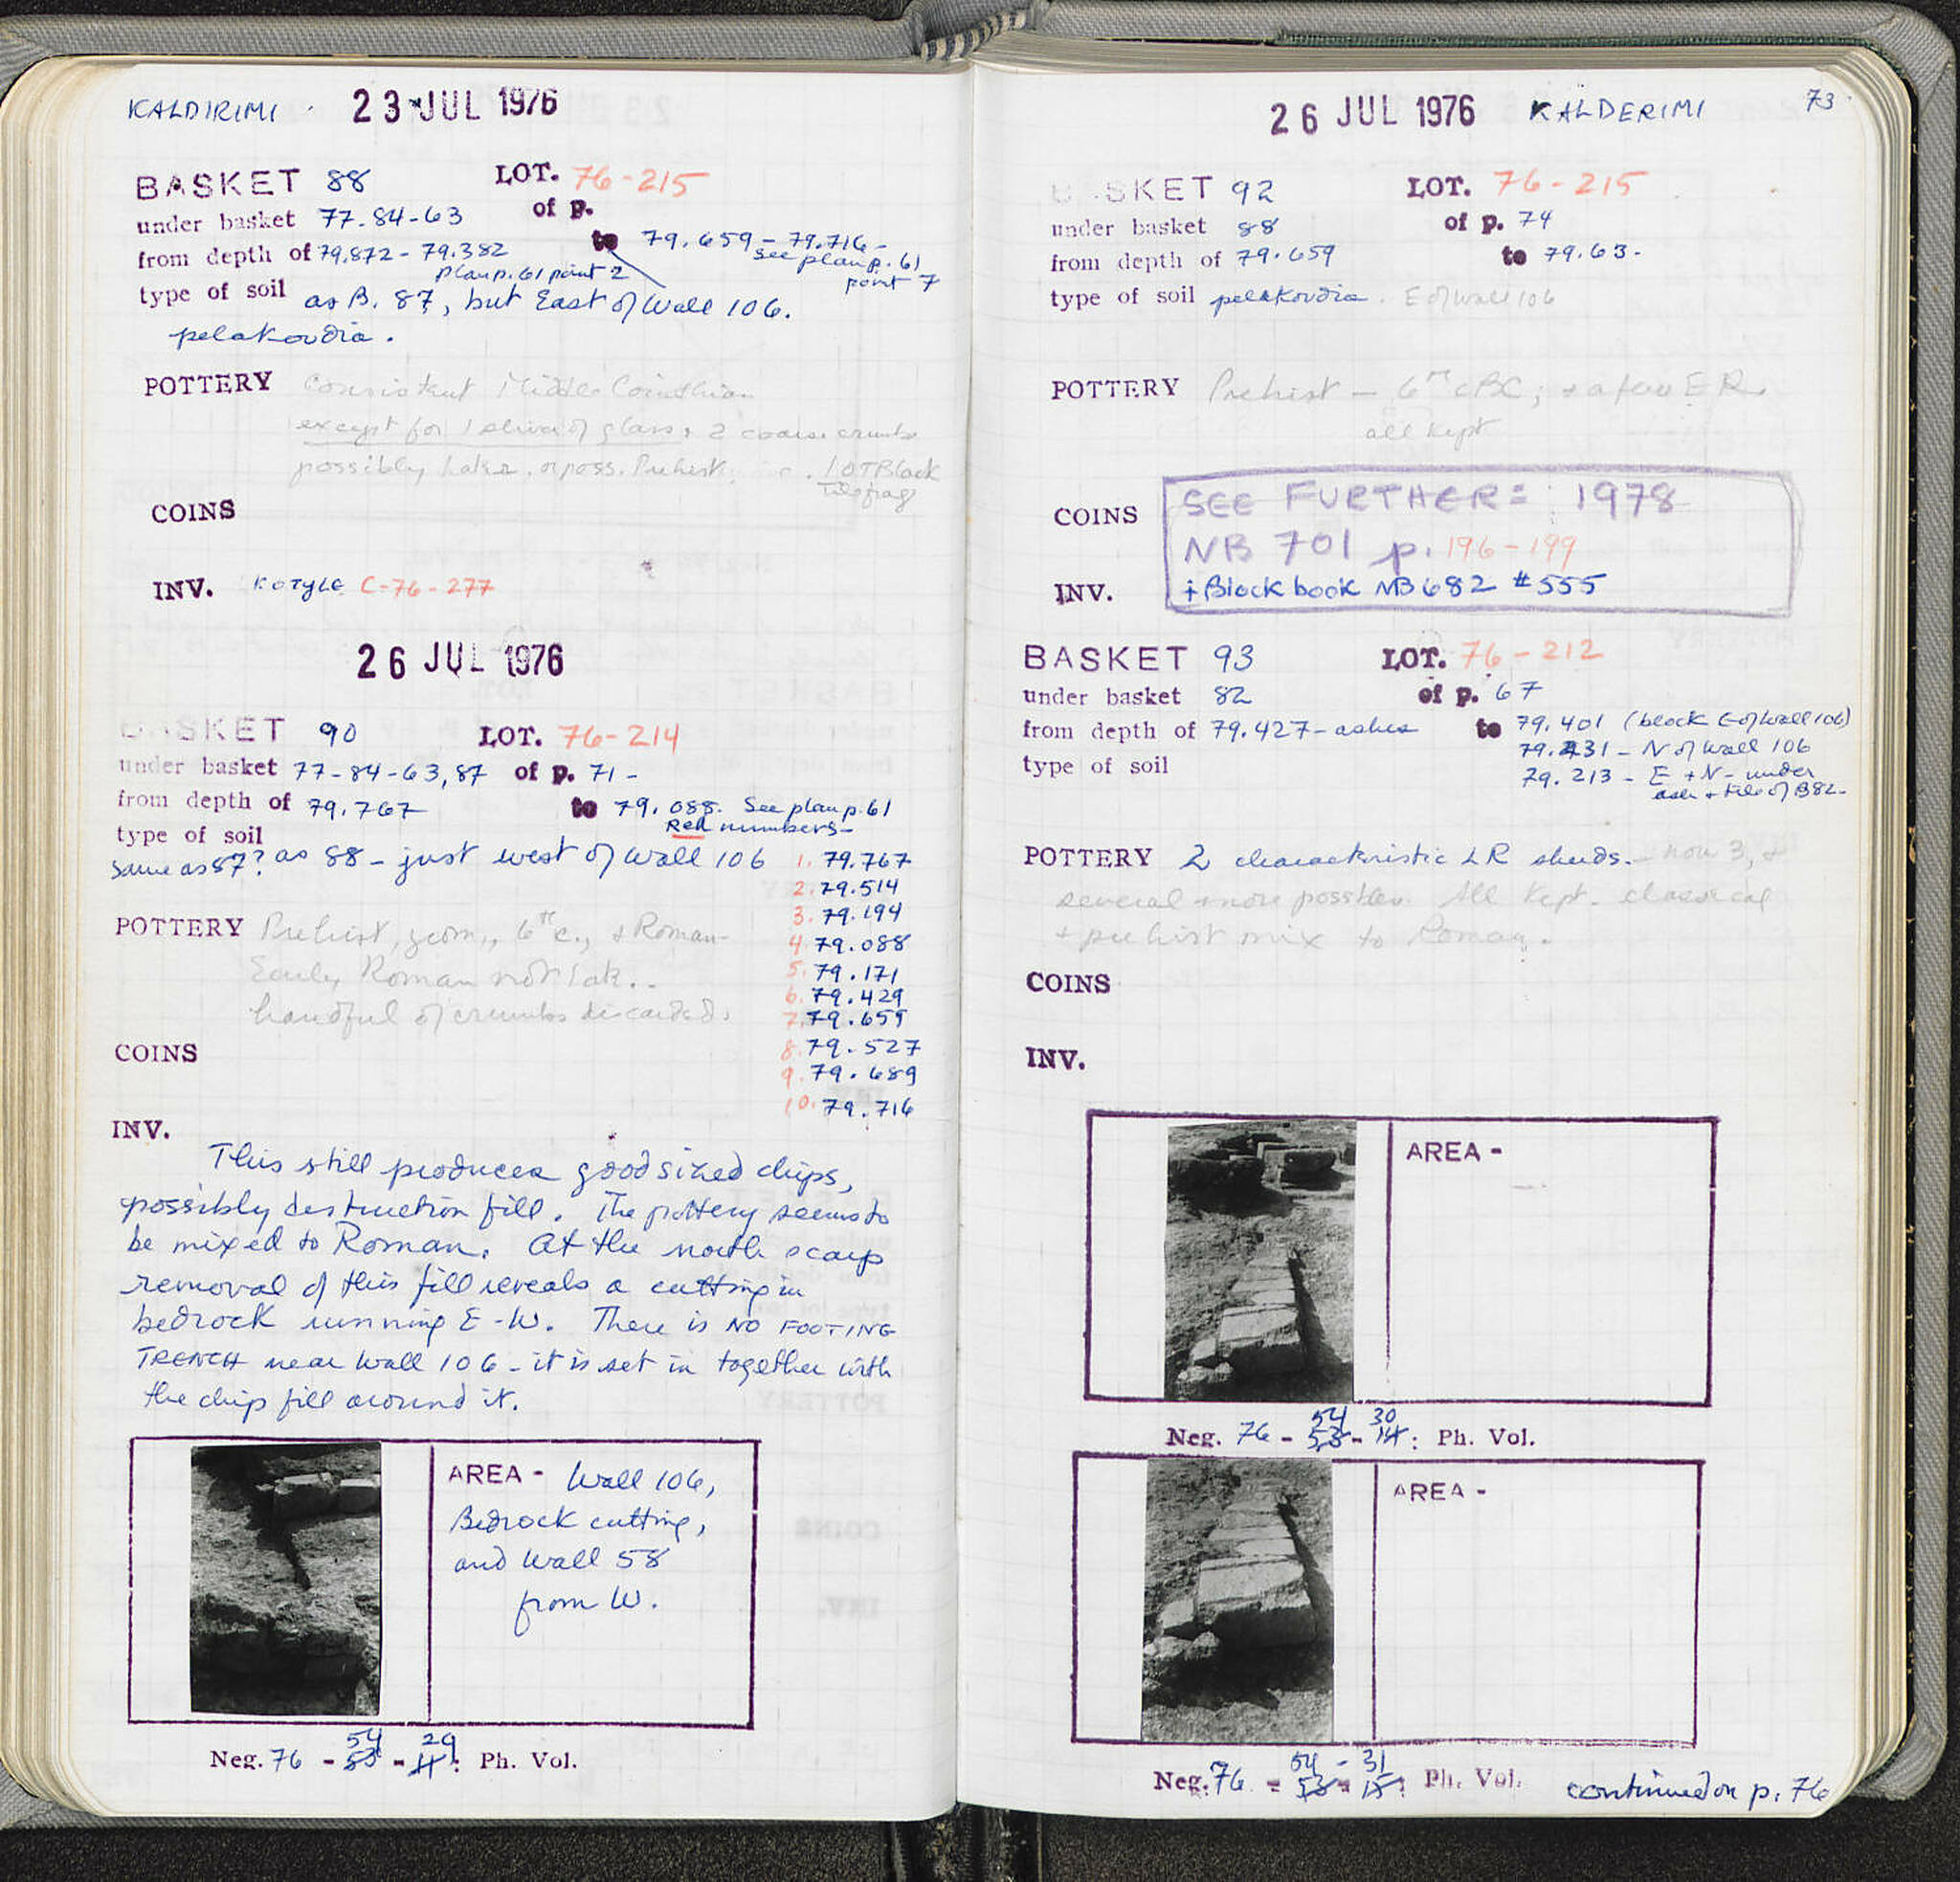 KALDIRIMI 23 JUL 1976
BASKET 88 LOT. 76-215
under basket 77-84-63 of p.
from depth of 79.872 - 79.382 to 79.659 - 79.716 -
plan p. 61 point 2 see plan p. 61
point 7
type of soil as B. 87, but East of Wall 106.
pelakoudia.
POTTERY Consistent Middle Corinthian
except for 1 sliver of glass, 2 coarse crumbs
possibly later, or poss. Prehist. 1 OT Black
Tile frag
COINS
INV. KOTYLE C-76-277
26 JUL 1976
BASKET 90 LOT. 76-214
under basket 77-84-63, 87 of p. 71 -
from depth of 79.767 to 79.088. See plan p. 61
Red numbers -
type of soil
same as 87? as 88 - just west of Wall 106
1. 79.767
2. 79.514
3. 79.194
4. 79.088
5. 79.171
6. 79.429
7. 79.659
8. 79.527
9. 79.689
10. 79.716
POTTERY Prehist, geom., 6th c., + Roman -
Early Roman not late..
handful of crumbs discarded.
COINS
INV.
This still produces good sized chips,
possibly destruction fill. The pottery seems to
be mixed to Roman. At the north scarp
removal of this fill reveals a cutting in
bedrock running E-W. There is NO FOOTING
TRENCH near Wall 106 - it is set in together with
the chip fill around it.
AREA - Wall 106,
Bedrock cutting,
and Wall 58
from W.
54 29
Neg. 76 - 53 - 11: Ph. Vol.
26 JUL 1976 KALDERIMI 73
BASKET 92 LOT. 76-215
under basket 88 of p. 74
from depth of 79.659 to 79.63.
type of soil pelakoudia. E of Wall 106
POTTERY Prehist - 6th c BC; + a few ER.
all kept
COINS
SEE FURTHER: 1978
NB 701 p. 196-199
+ Block book NB 682 #555
INV.
BASKET 93 LOT. 76-212
under basket 82 of p. 67
from depth of 79.427 - ashes to 79.401 (block E of Wall 106)
79.431 - N of Wall 106
type of soil
79.213 - E + N - under
ash + tile of B82 -
POTTERY 2 characteristic LR sherds. - now 3, +
several + more possible. All kept. classical
+ prehist mix to Roman.
COINS
INV.
AREA -
54 30
Neg. 76 - 53 - 14: Ph. Vol.
AREA -
54 - 31
Neg. 76 - 53 - 15: Ph. Vol. continued on p. 76